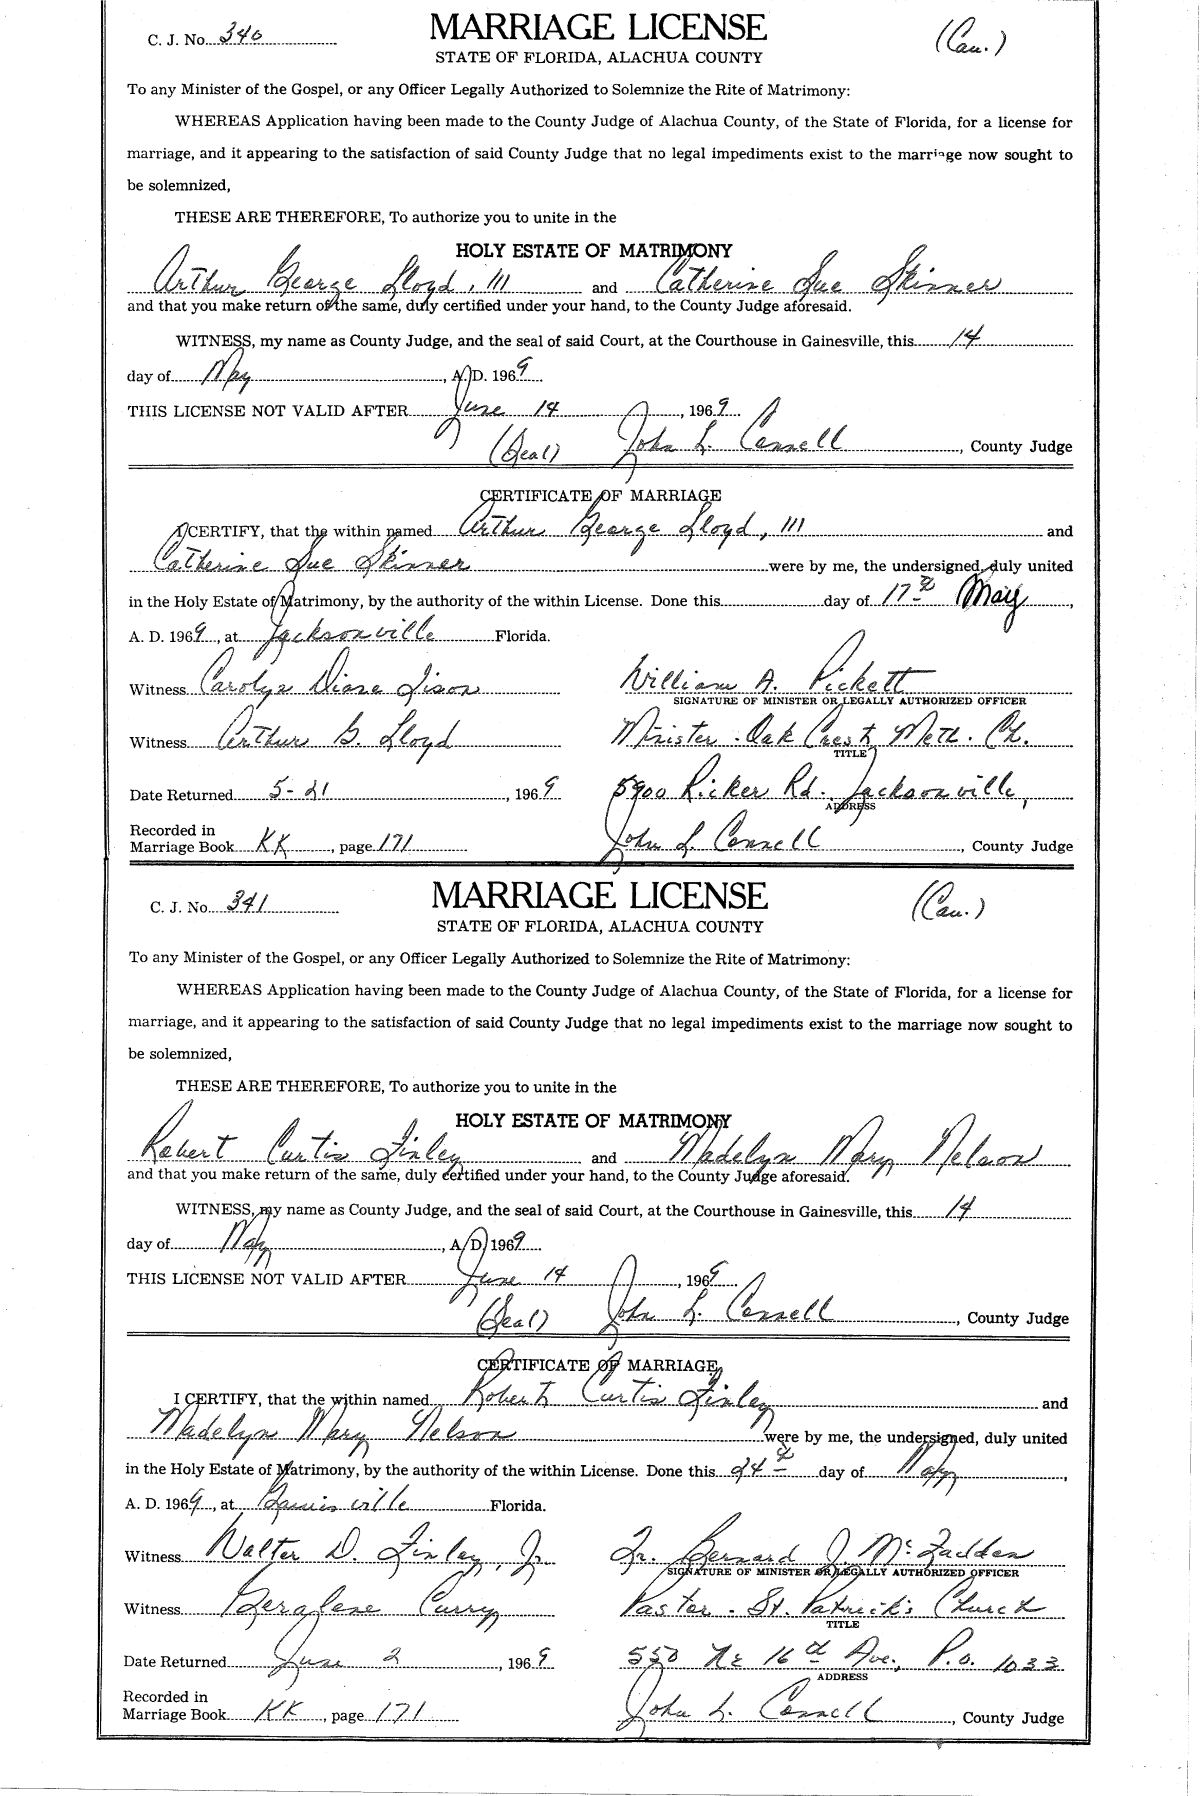 C. J. No. 340
MARRIAGE LICENSE
(Cau.)
STATE OF FLORIDA, ALACHUA COUNTY
To any Minister of the Gospel, or any Officer Legally Authorized to Solemnize the Rite of Matrimony:
WHEREAS Application having been made to the County Judge of Alachua County, of the State of Florida, for a license for
marriage, and it appearing to the satisfaction of said County Judge that no legal impediments exist to the marriage now sought to
be solemnized,
THESE ARE THEREFORE, To authorize you to unite in the
HOLY ESTATE OF MATRIMONY
Arthur George Lloyd, III and Catherine Sue Skinner
and that you make return of the same, duly certified under your hand, to the County Judge aforesaid.
WITNESS, my name as County Judge, and the seal of said Court, at the Courthouse in Gainesville, this 14
day of May, A. D. 1969
THIS LICENSE NOT VALID AFTER June 14, 1969
(Seal) John L. Connell, County Judge
CERTIFICATE OF MARRIAGE
I CERTIFY, that the within named Arthur George Lloyd, III and
Catherine Sue Skinner were by me, the undersigned, duly united
in the Holy Estate of Matrimony, by the authority of the within License. Done this day of 17th May,
A. D. 1969, at Jacksonville Florida.
Witness Carolyn Diane Sison William A. Pickett
SIGNATURE OF MINISTER OR LEGALLY AUTHORIZED OFFICER
Witness Arthur G. Lloyd Minister - Oak Crest Meth. Ch.
TITLE
Date Returned 5-21, 1969 5900 Ricker Rd., Jacksonville,
ADDRESS
Recorded in
Marriage Book KK, page 171 John L. Connell, County Judge
C. J. No. 341
MARRIAGE LICENSE
(Cau.)
STATE OF FLORIDA, ALACHUA COUNTY
To any Minister of the Gospel, or any Officer Legally Authorized to Solemnize the Rite of Matrimony:
WHEREAS Application having been made to the County Judge of Alachua County, of the State of Florida, for a license for
marriage, and it appearing to the satisfaction of said County Judge that no legal impediments exist to the marriage now sought to
be solemnized,
THESE ARE THEREFORE, To authorize you to unite in the
HOLY ESTATE OF MATRIMONY
Robert Curtis Finley and Madelyn Mary Nelson
and that you make return of the same, duly certified under your hand, to the County Judge aforesaid.
WITNESS, my name as County Judge, and the seal of said Court, at the Courthouse in Gainesville, this 14
day of May, A. D. 1969
THIS LICENSE NOT VALID AFTER June 14, 1969
(Seal) John L. Connell, County Judge
CERTIFICATE OF MARRIAGE
I CERTIFY, that the within named Robert Curtis Finley and
Madelyn Mary Nelson were by me, the undersigned, duly united
in the Holy Estate of Matrimony, by the authority of the within License. Done this 24th day of May,
A. D. 1969, at Gainesville Florida.
Witness Walter D. Finley, Jr. Fr. Bernard J. McFadden
SIGNATURE OF MINISTER OR LEGALLY AUTHORIZED OFFICER
Witness Geralene Curry Pastor - St. Patrick's Church
TITLE
Date Returned June 2, 1969 550 NE 16th Ave., P.O. 1033
ADDRESS
Recorded in
Marriage Book KK, page 171 John L. Connell, County Judge